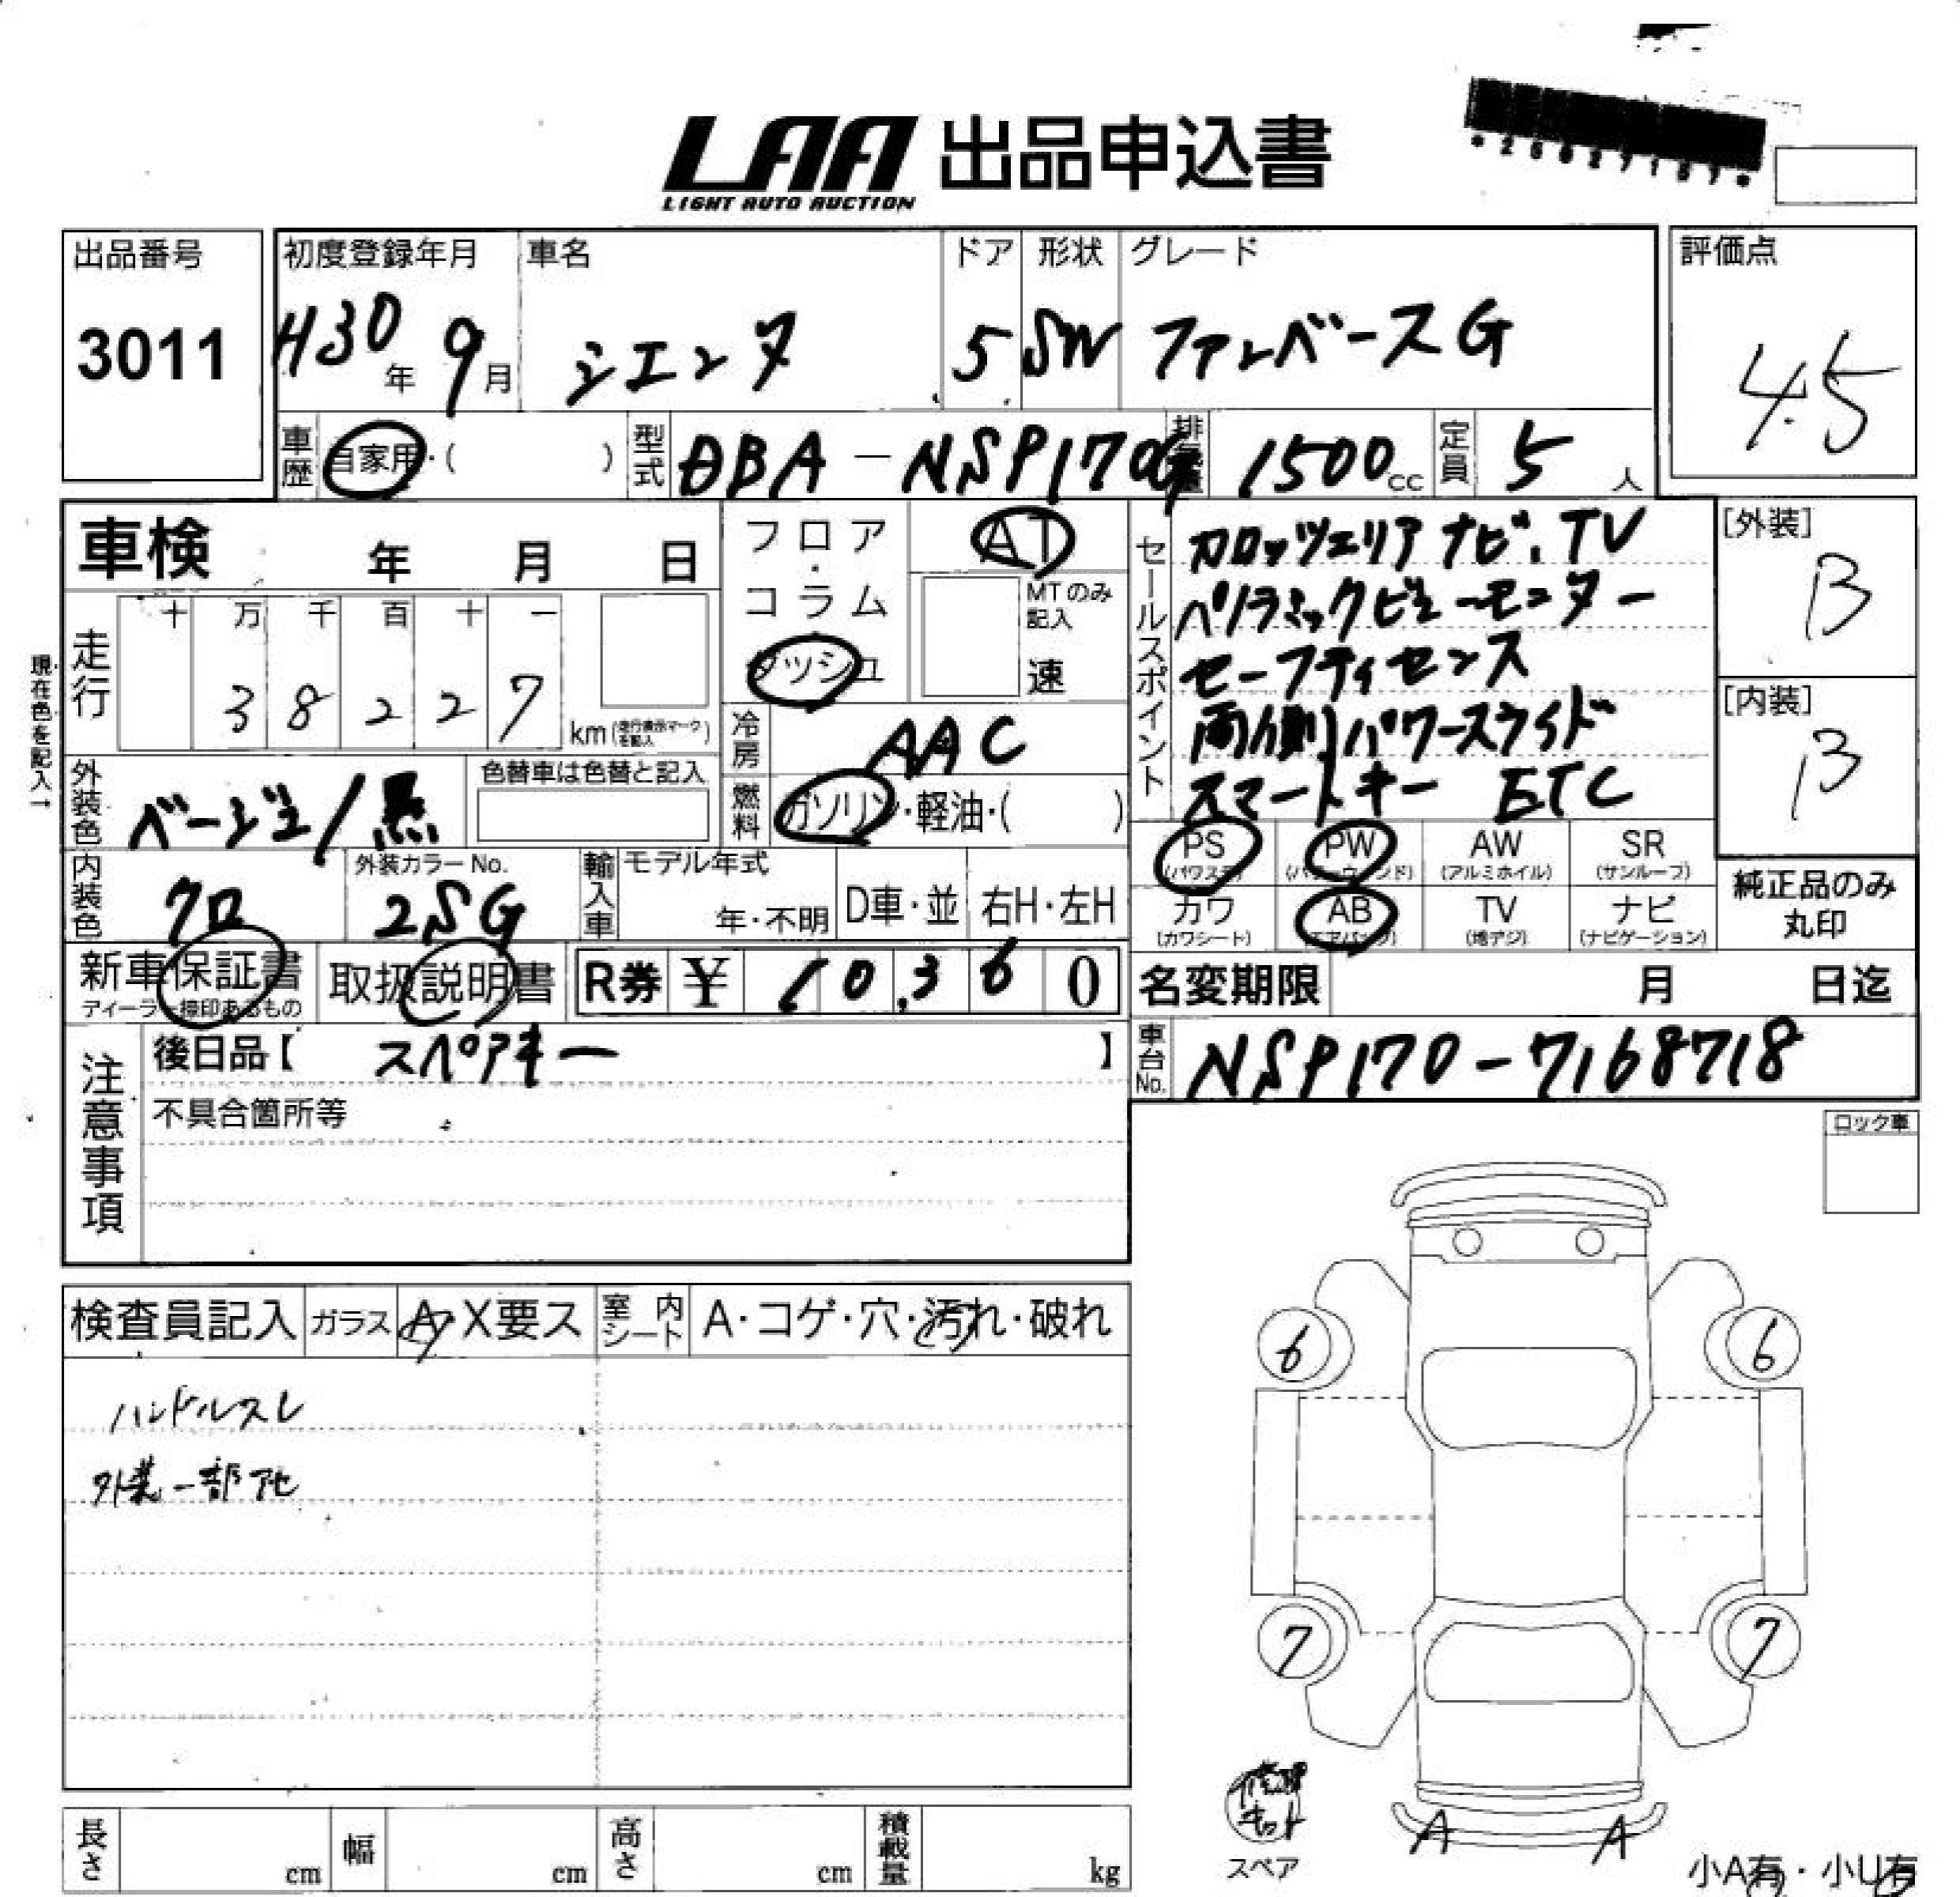 LAA 出品申込書
LIGHT AUTO AUCTION
出品番号
3011
初度登録年月
H30年 9月
車名
シエンタ
ドア
5
形状
SW
グレード
ファンベースG
評価点
4.5
車歴
自家用・( )
型式
DBA-NSP170G
排気量
1500cc
定員
5人
車検 年 月 日
フロア・コラム
ダッシュ
AT
MTのみ記入
速
セールスポイント
カロッツェリアナビ、TV
パノラミックビューモニター
セーフティセンス
両側パワースライド
スマートキー ETC
[外装]
B
[内装]
B
現在色を記入→
走行
十 万 千 百 十 一
3 8 2 2 7
km(走行表示マークを記入)
冷房
AAC
外装色
ベージュ/黒
色替車は色替と記入
燃料
ガソリン・軽油・( )
PS
(パワステ)
PW
(パワーウィンド)
AW
(アルミホイル)
SR
(サンルーフ)
カワ
(カワシート)
AB
(エアバッグ)
TV
(地デジ)
ナビ
(ナビゲーション)
純正品のみ
丸印
内装色
クロ
外装カラーNo.
2SG
輸入車
モデル年式
年・不明
D車・並
右H・左H
新車保証書
ディーラー捺印あるもの
取扱説明書
R券 ¥ 10,360
名変期限 月 日迄
車台No.
NSP170-7168718
注意事項
後日品【 スペアキー 】
不具合箇所等
ロック車
検査員記入
ガラス
A・X要ス
室内シート
A・コゲ・穴・汚れ・破れ
ハンドルスレ
外装一部アセ
6
6
7
7
キット
スペア
A
A
小A有・小U有
長さ cm
幅 cm
高さ cm
積載量 kg